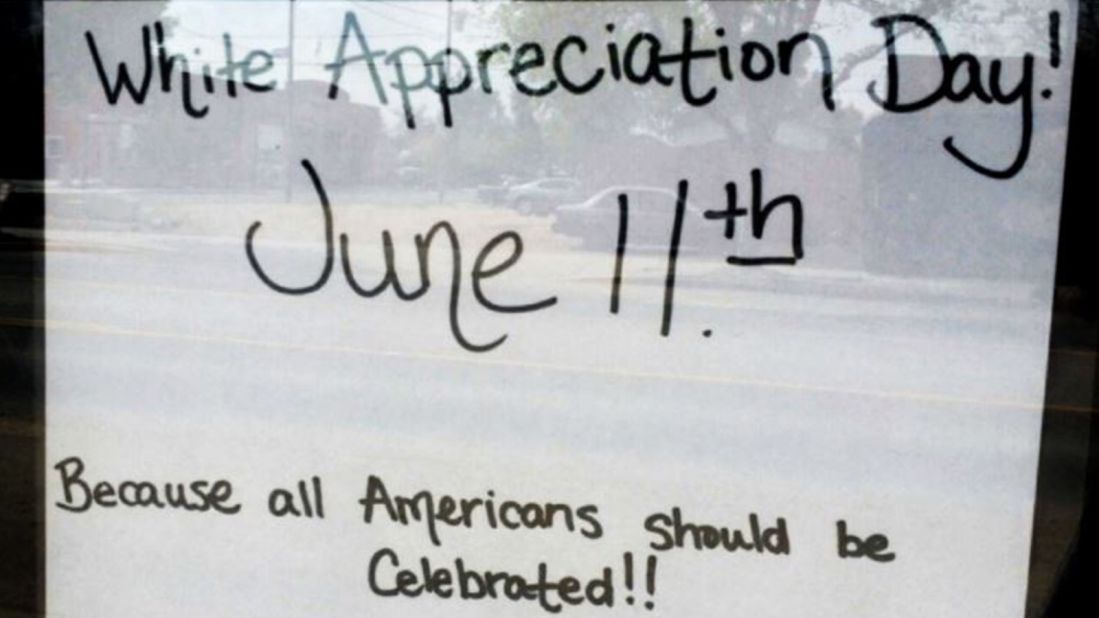 White Appreciation Day!
June 11.th
Because all Americans should be
Celebrated!!